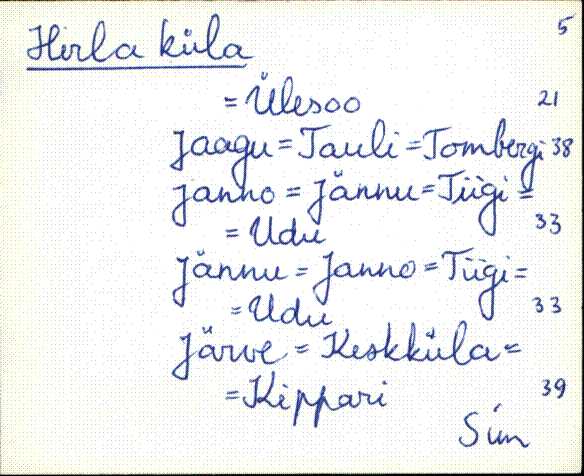 Hirla küla 5
= Ülesoo 21
Jaagu = Tauli = Tombergi 38
Janno = Jännu = Tiigi =
= Udu 33
Jännu = Janno = Tiigi =
= Udu 33
Järve = Keskküla =
= Kippari 39